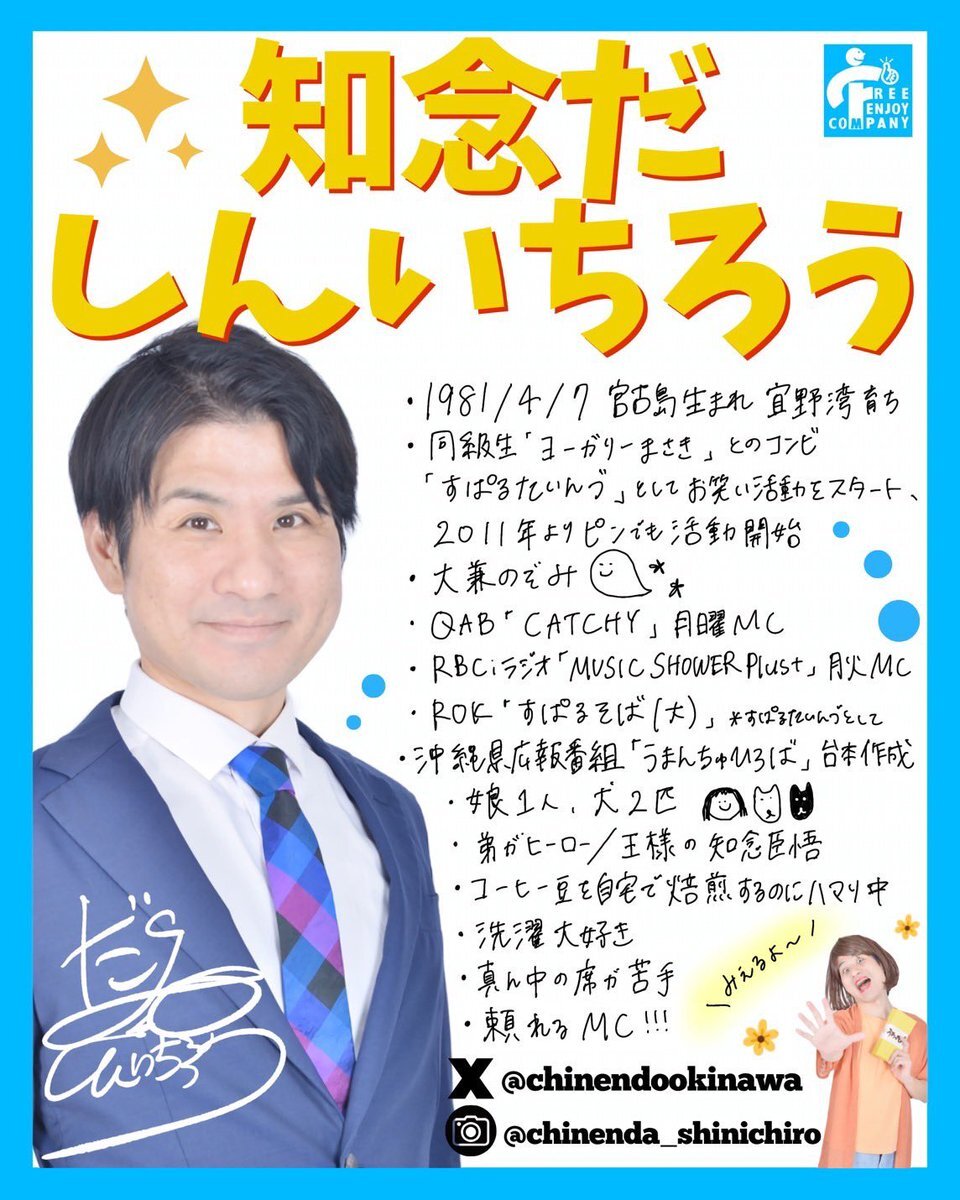 知念だ
しんいちろう
FREE
ENJOY
COMPANY
・1981/4/7 宮古島生まれ 宜野湾育ち
・同級生「ヨーガリーまさき」とのコンビ
「すぱるたいんづ」としてお笑い活動をスタート、
2011年よりピンでも活動開始
・大兼のぞみ
・QAB「CATCHY」月曜MC
・RBCiラジオ「MUSIC SHOWER Plus+」月火MC
・ROK「すぱるそば(大)」*すぱるたいんづとして
・沖縄県広報番組「うまんちゅひろば」台本作成
・娘1人、犬2匹
・弟がヒーロー/王様の知念臣悟
・コーヒー豆を自宅で焙煎するのにハマり中
・洗濯大好き
・真ん中の席が苦手
・頼れるMC!!!
\みえるよ〜/
だ
しんいちろう
X @chinendookinawa
@chinenda_shinichiro